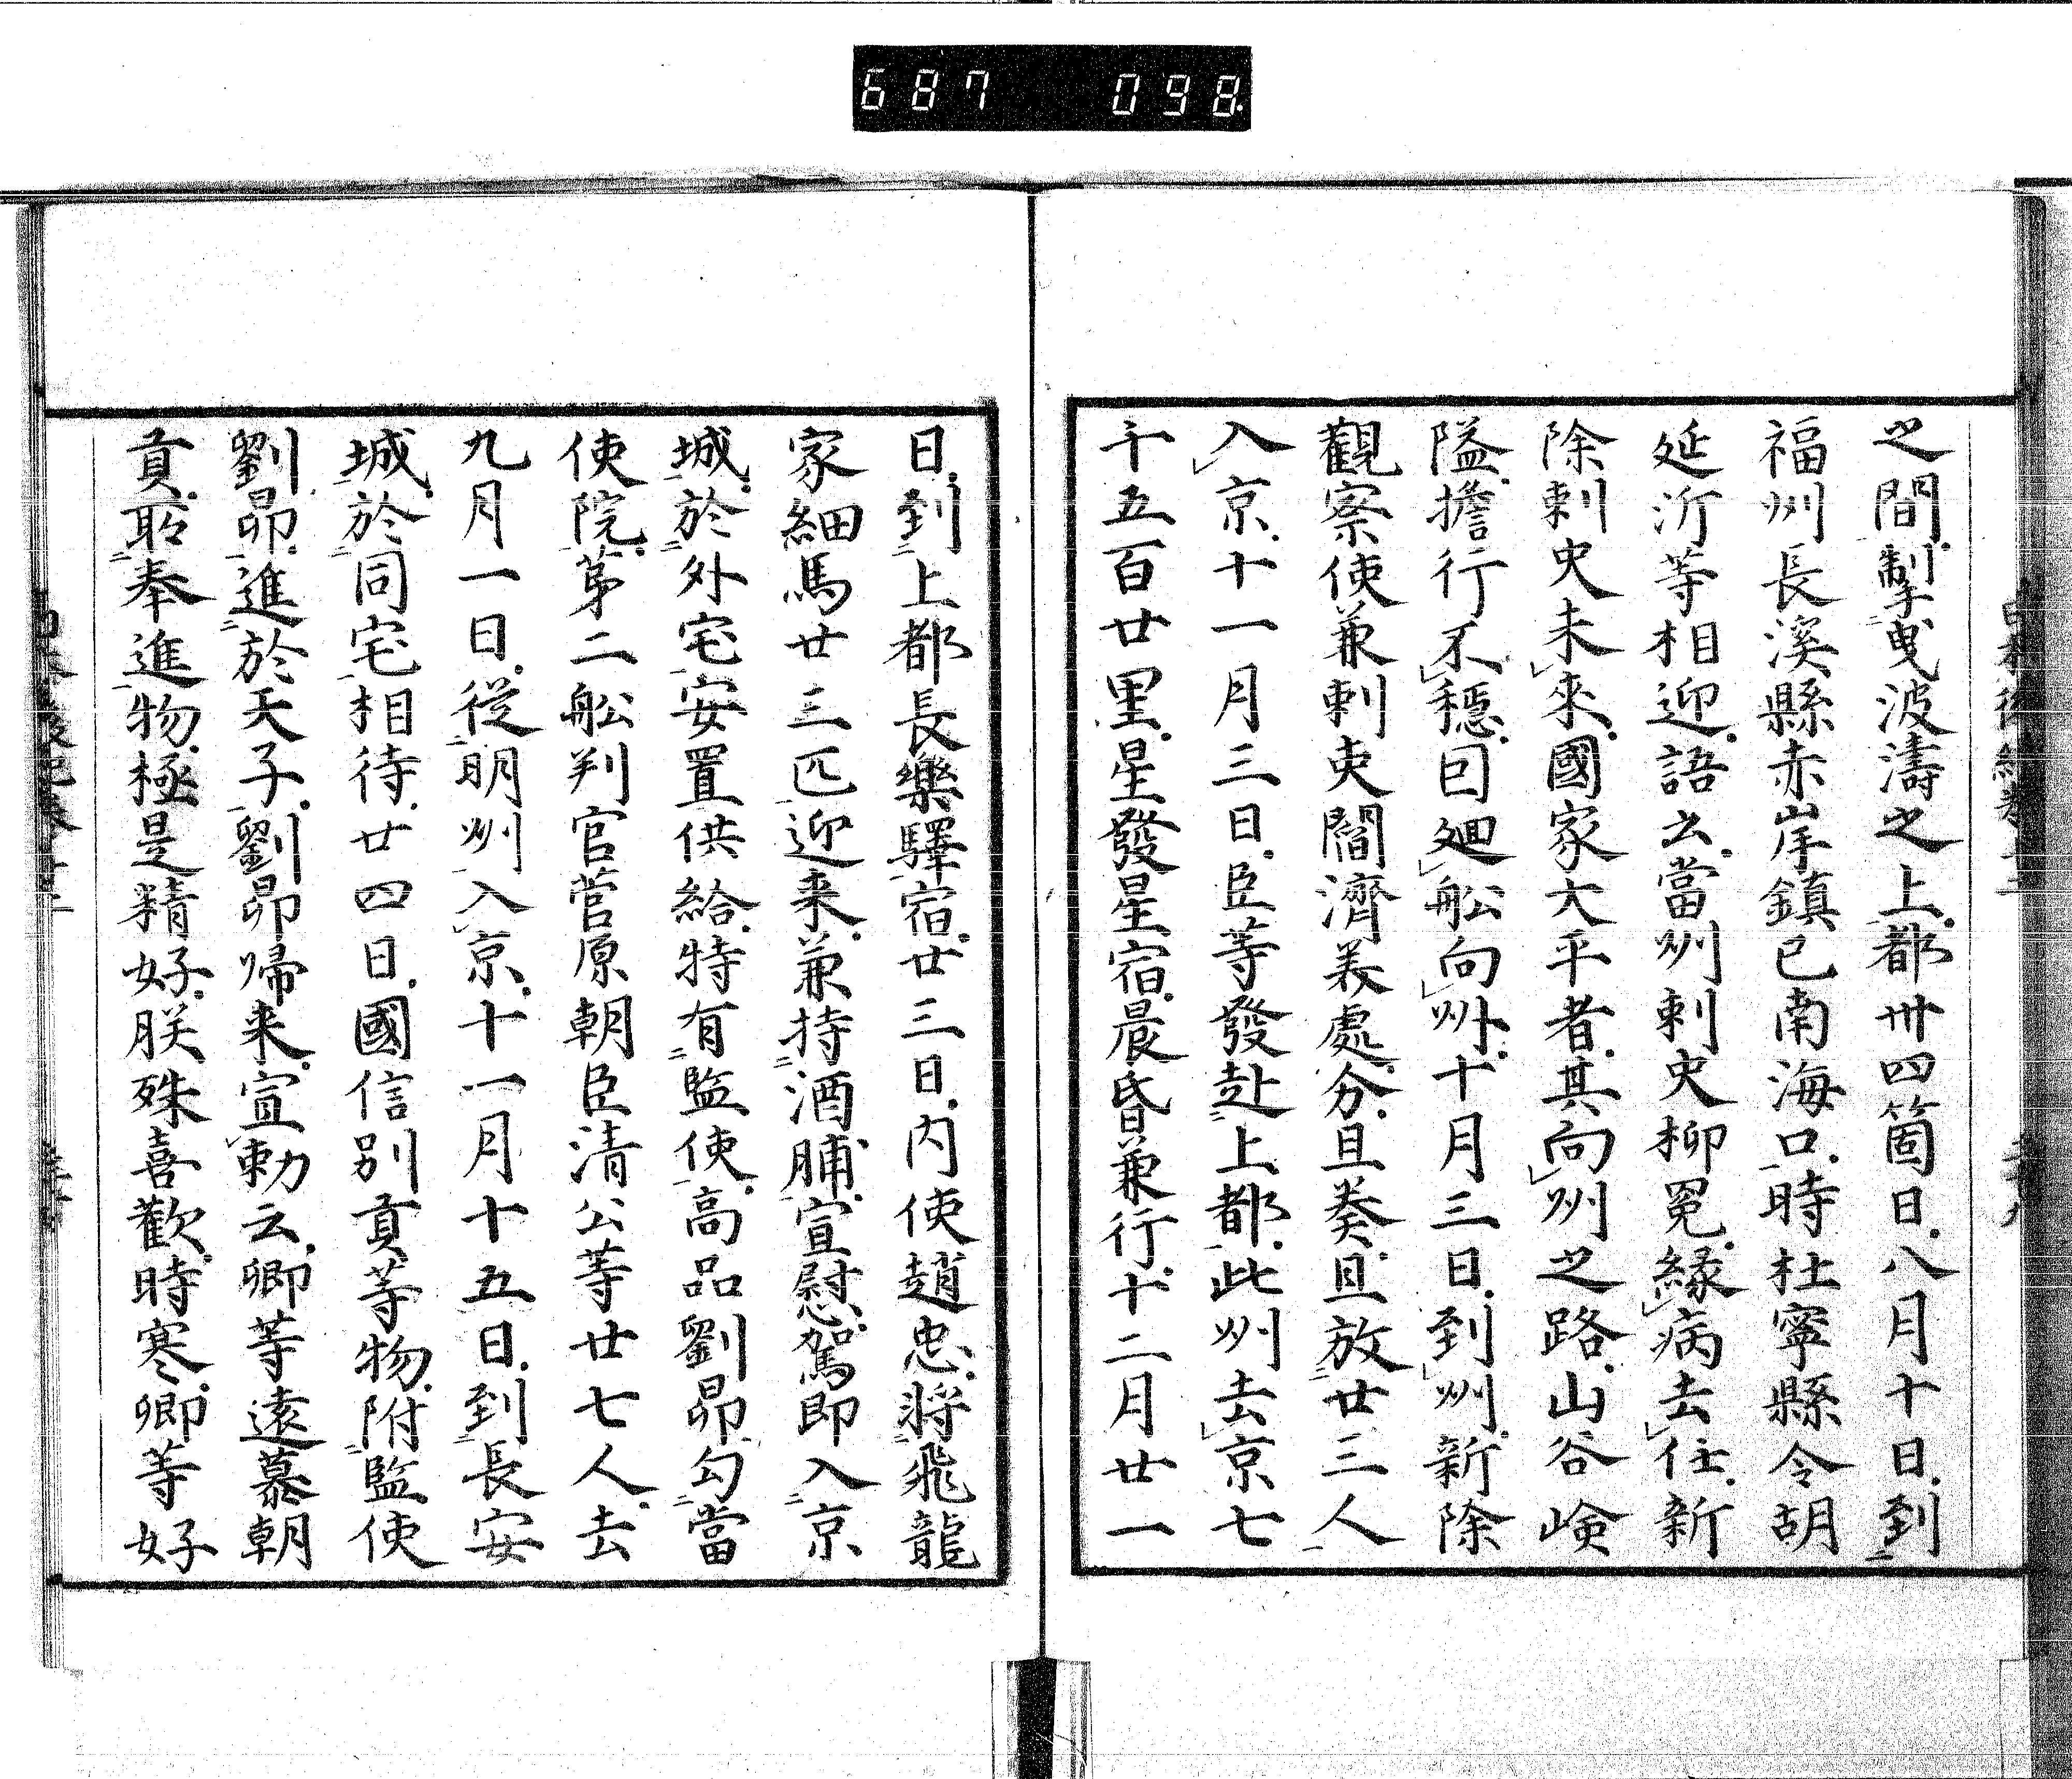 687 098
之間掣曳波濤之上都卅四箇日八月十日到
福州長溪縣赤岸鎮已南海口時杜寧縣令胡
延沂等相迎語云當州刺史柳冕緣病去任新
除刺史未來國家大平者其向州之路山谷嶮
隘擔行不穩因廻舩向州十月三日到州新除
觀察使兼刺史閻濟美處分且奏且放廿三人
入京十一月三日臣等發赴上都此州去京七
千五百廿里星發星宿晨昏兼行十二月廿一
日到上都長樂驛宿廿三日內使趙忠將飛龍
家細馬廿三匹迎来兼持酒脯宣慰駕即入京
城於外宅安置供給特有監使高品劉昴勾當
使院第二舩判官菅原朝臣清公等廿七人去
九月一日從明州入京十一月十五日到長安
城於同宅相待廿四日國信別貢等物附監使
劉昴進於天子劉昴歸来宣勅云卿等遠慕朝
貢所奉進物極是精好朕殊喜歡時寒卿等好